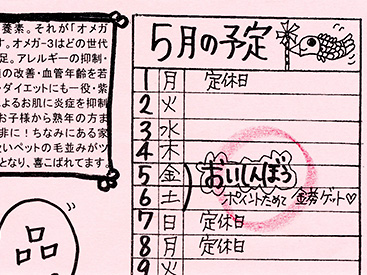 養素。それが「オメガ
す。オメガ-3はどの世代
足。アレルギーの抑制・
の改善・血管年齢を若
ダイエットにも一役・紫
よるお肌に炎症を抑制
お子様から熟年の方ま
非に！ちなみにある家
いペットの毛並みがツ
となり、喜こばれてます。
品
5月の予定
1 月 定休日
2 火
3 水
4 木
5 金
おいしんぼう
6 土 ポイントためて 金券ゲット♡
7 日 定休日
8 月 定休日
9 火